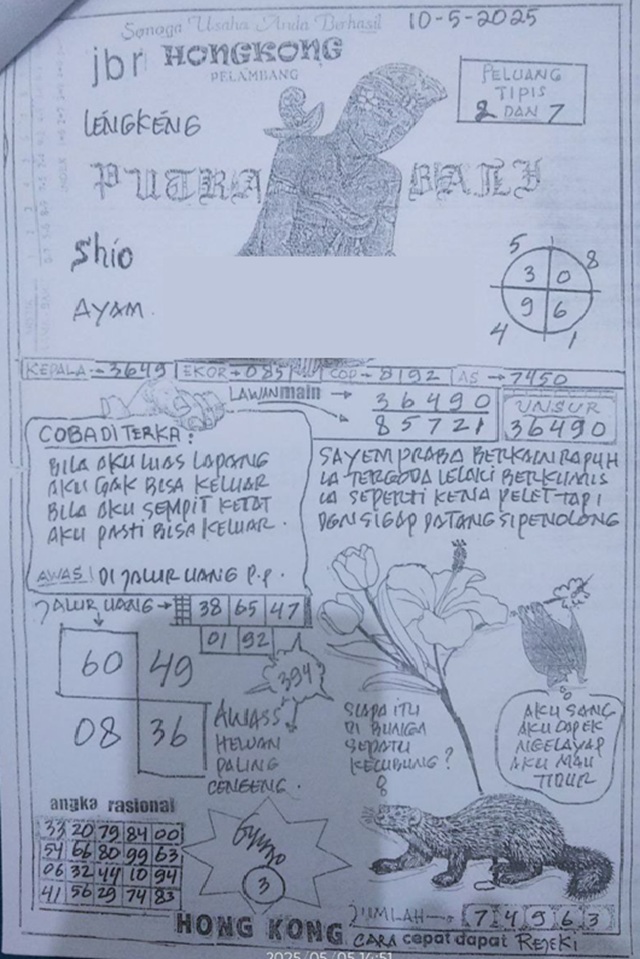 Semoga Usaha Anda Berhasil
10-5-2025
jbr HONGKONG
PELAMBANG
PELUANG
TIPIS
2 DAN 7
LENGKENG
PUTRA BALI
Shio
AYAM.
5 8
3 0
9 6
4 1
KEPALA → 3649 EKOR → 0851 COP → 8192 AS → 7450
LAWAN main → 36490
85721
UNSUR
36490
COBA DITERKA:
BILA AKU LUAS LAPANG
AKU GAK BISA KELUAR
BILA AKU SEMPIT KETAT
AKU PASTI BISA KELUAR.
AWAS! DI JALUR UANG P.P.
SAYEMPRABA BERKAIN RAPUH
IA TERGODA LELAKI BERKUMIS
IA SEPERTI KENA PELET TAPI
DGN SIGAP DATANG SIPENOLONG
JALUR UANG → 38 65 47
01 92
60 49
08 36
394
AWASS
HEWAN
PALING
CENGENG.
SIAPA ITU
DI BUNGA
SEPATU
KECUBUNG?
8
AKU SANG
AKU CAPEK
NGELAYAP
AKU MAU
TIDUR
angka rasional
33 20 79 84 00
54 66 80 99 63
06 32 44 10 94
41 56 29 74 83
3
JUMLAH → 7 4 9 6 3
HONG KONG CARA cepat dapat REJEKI
2025/05/05 14:51